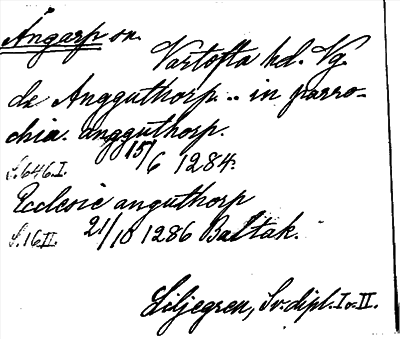 Ångarp sn.
Vartofta hd. Vg.
de Angguthorp .. in parro-
chia. angguthorp.
S. 646. I. 15/6 1284.
Ecclesie anguthorp
S. 16. II. 21/10 1286 Baltak.
Liljegren, Sv. dipl. I o. II.